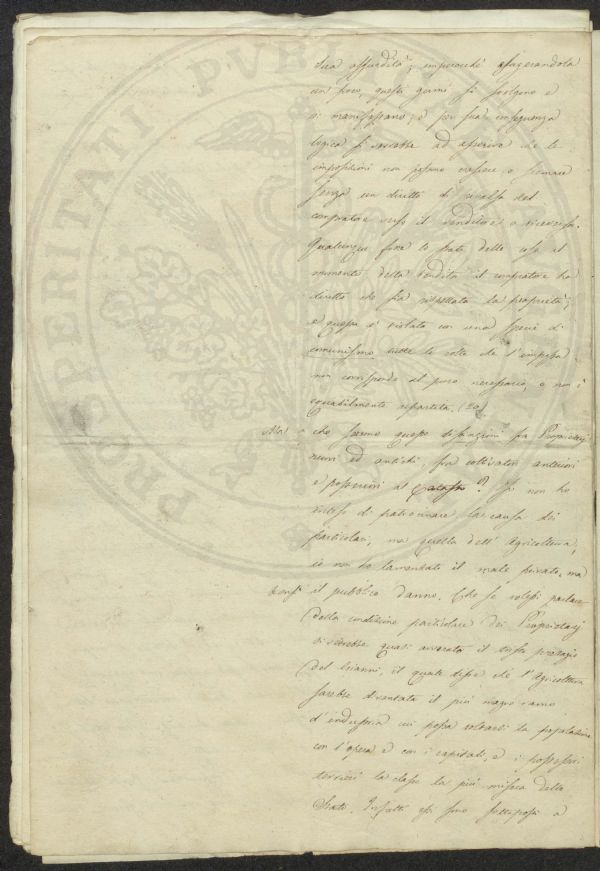 PROSPERITATI PVBLICAE
sua assurdità; imperocchè esagerandola
un poco, questi germi si svolgono e
si manifestano; e per sua conseguenza
logica si verrebbe ad asserire che le
imposizioni non possano crescere o scemare
senza un diritto di rivalsa del
compratore verso il venditore o viceversa.
Qualunque fosse lo stato delle cose al
momento della vendita il compratore ha
diritto che sia rispettata la proprietà;
e questa è violata con una specie di
comunismo tutte le volte che l'imposta
non corrisponde al puro necessario, o non è
equabilmente repartita. (20)
Ma che fanno queste distinzioni fra Proprietarj
nuovi ed antichi, fra coltivatori anteriori
e posteriori al Catasto? Io non ho
inteso di patrocinare la causa dei
particolari, ma quella dell'Agricoltura,
io non ho lamentato il male privato, ma
il pubblico danno. Che se volessi parlare
della condizione particolare dei Proprietarj
si direbbe quasi avverato il tristo presagio
del Gianni, il quale disse che l'Agricoltura
sarebbe diventata il più magro ramo
d'industria cui possa voltarsi la popolazione
con l'opera e con i capitali, e i possessori
terrieri la classe la più misera dello
Stato. Infatti essi sono sottoposti a